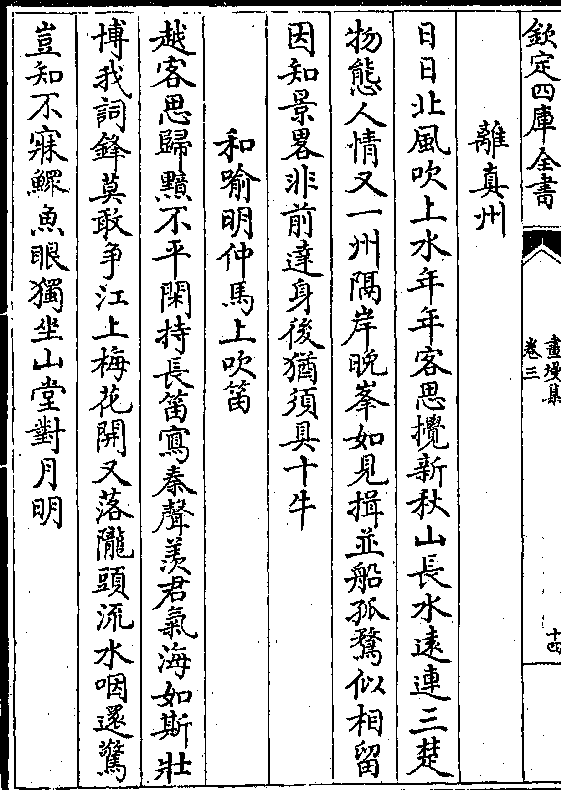 欽定四庫全書
畫墁集
卷三
十四
離真州
日日北風吹上水年年客思攪新秋山長水遠連三楚
物態人情又一州隔岸晚峯如見揖並船孤鶩似相留
因知景畧非前達身後猶須具十牛
和喻明仲馬上吹笛
越客思歸黯不平閑持長笛寫秦聲羨君氣海如斯壯
博我詞鋒莫敢争江上梅花開又落隴頭流水咽還驚
豈知不寐鰥魚眼獨坐山堂對月明